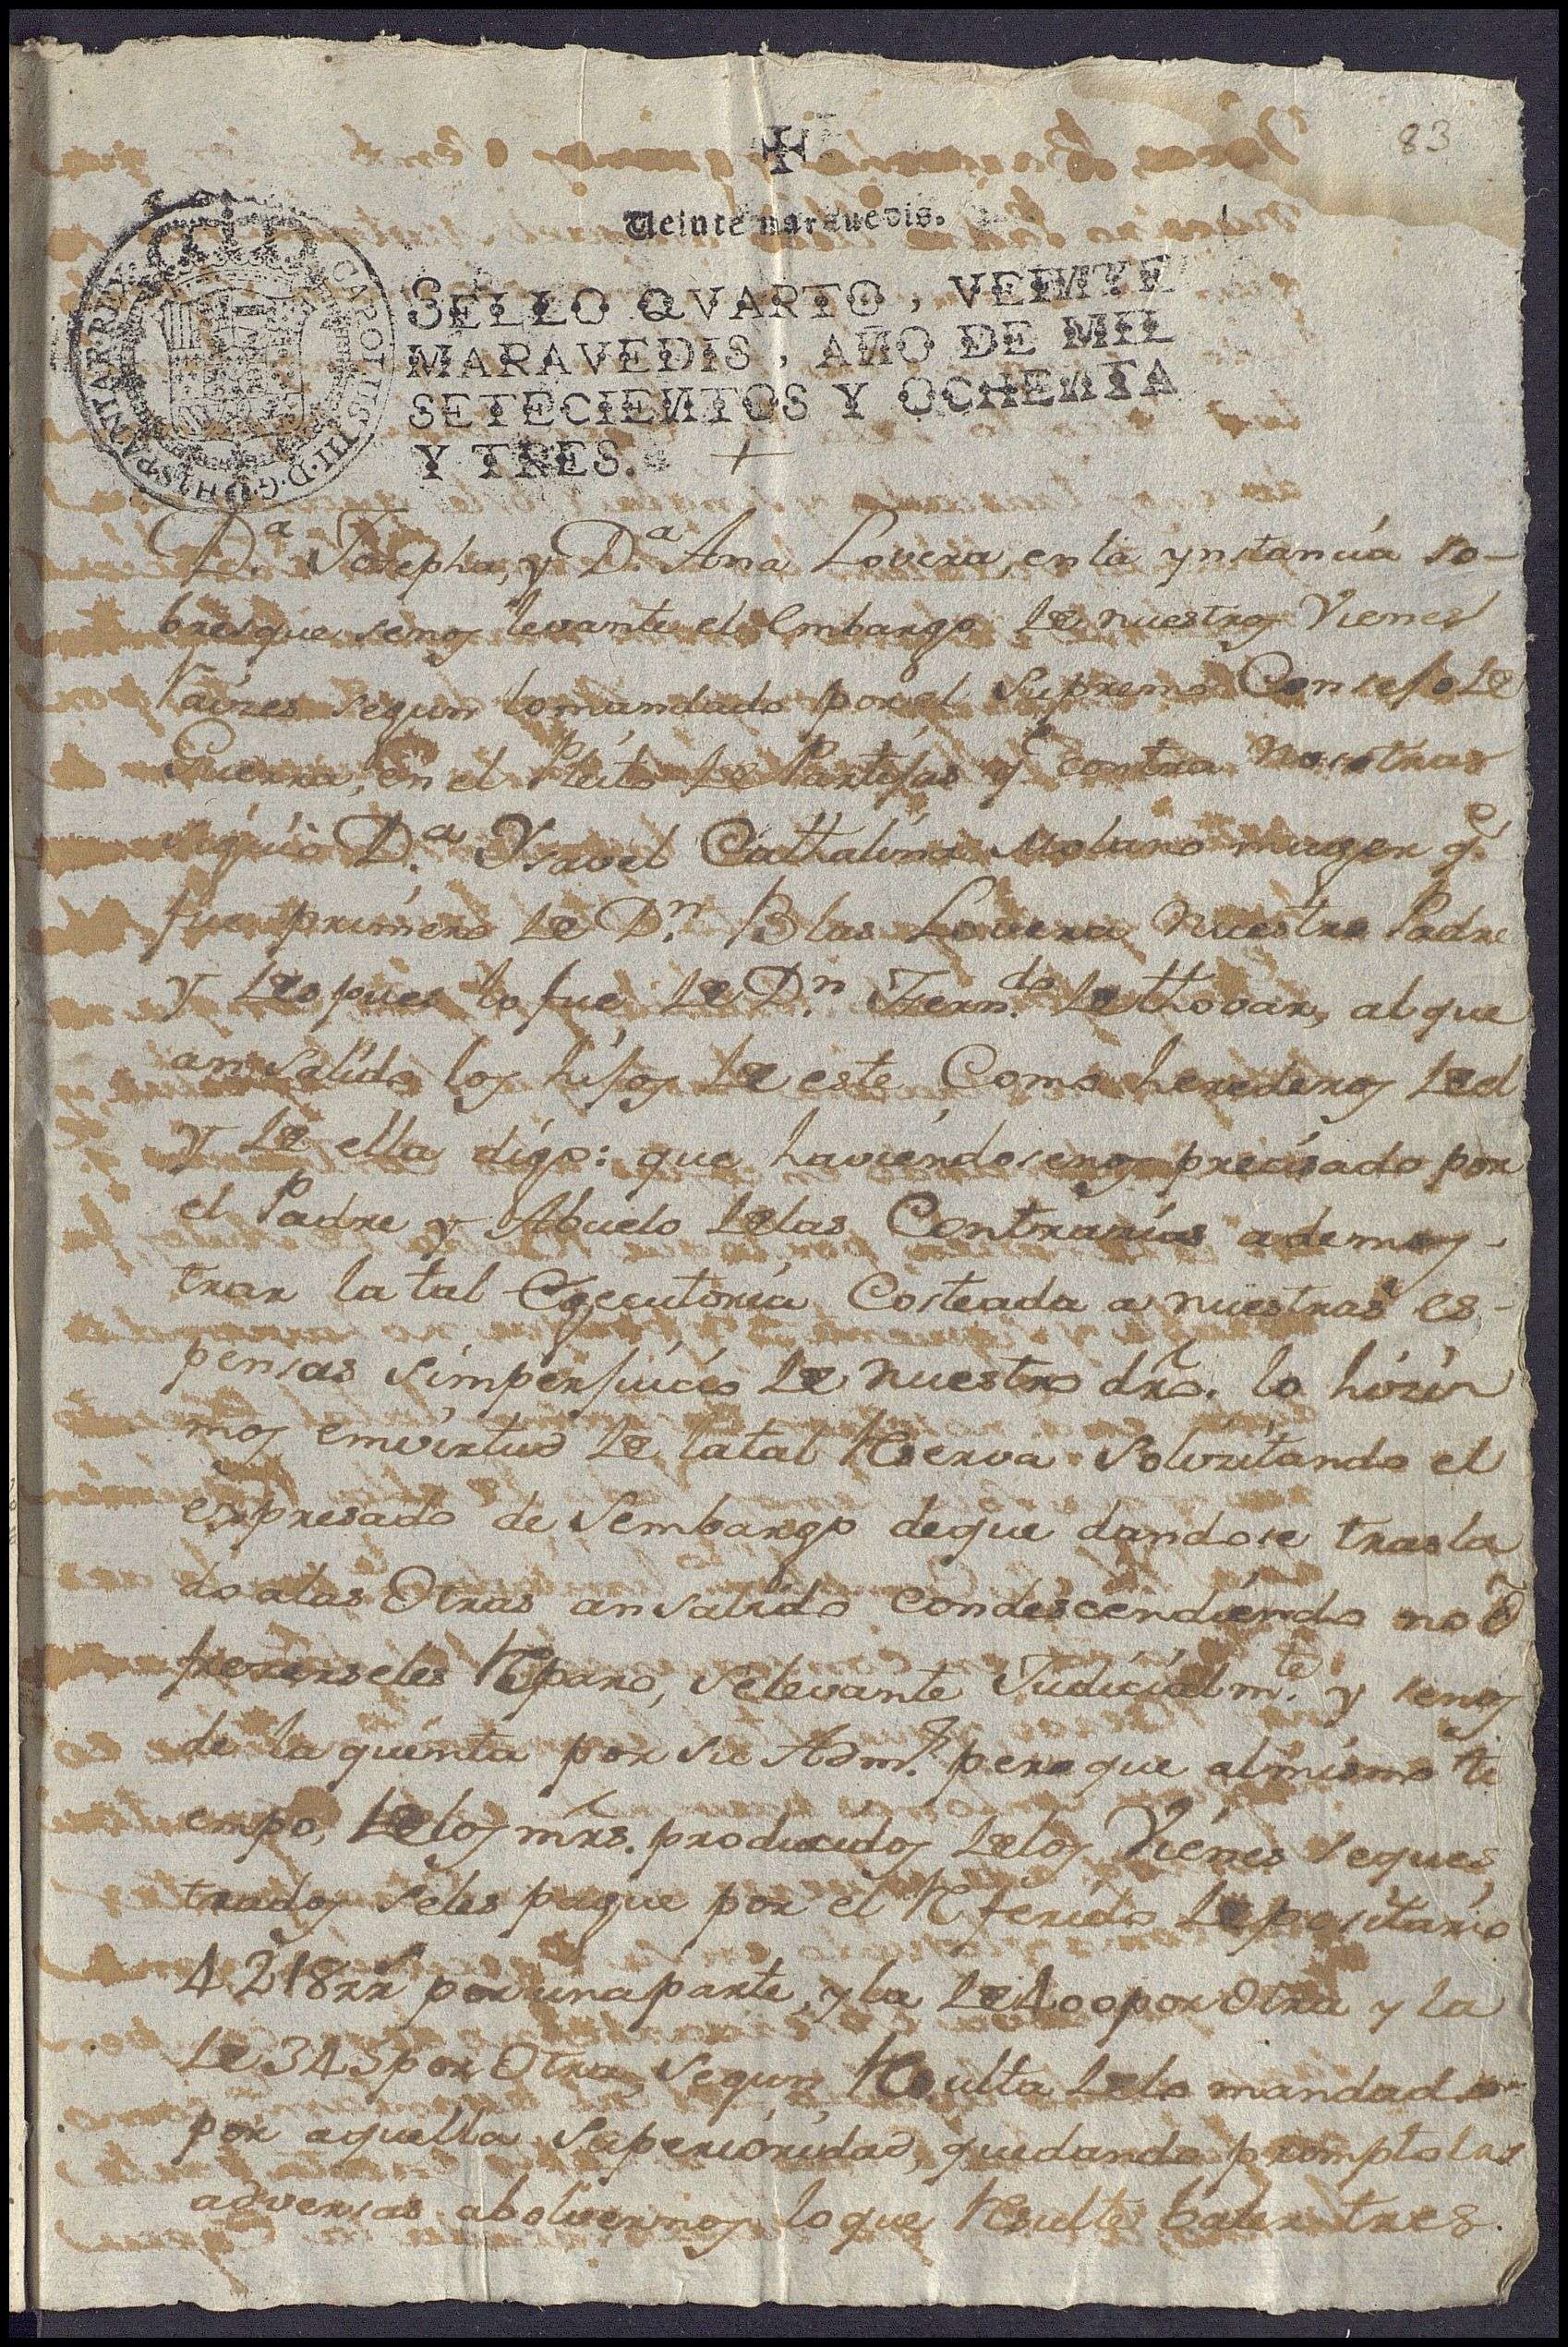 83
Veinte maravedis.
SELLO QVARTO, VEINTE
MARAVEDIS, AÑO DE MIL
SETECIENTOS Y OCHENTA
Y TRES.
CAROLUS III D G HISPANIAR REX
D.ª Josepha, y D.ª Ana Lovera, en la ynstancia so-
bresque senos levante el embargo de nuestros Vienes
raizes segun lo mandado por el Supremo Consejo de
Guerra, en el Pleito de Partijas q.e contra nosotras
siguió D.ª Ysavel Cathalina Molano muger q.e
fue primero de D.n Blas Lovera nuestro Padre
y despues lo fue de D.n Fern.do de Thovar, al que
an salido los hijos de este Como herederos del
y de ella digo: que haviendosenos precisado por
el Padre y Abuelo delas Contrarias a demos-
trar la tal Egecutoria Costeada a nuestras es-
pensas simperjuicio de nuestro dro. lo hizi
mos emvirtud de latal Reserva solizitando el
expresado desembargo deque dandose trasla
do alas Otras an salido Condescendiendo no o
frezerseles Reparo, selevante Judicialm.te y senos
de la quenta por su Adm.r pero que almismo ti
empo, delos mrs. producidos delos Vienes seques
trados seles pague por el Referido depositario
4218 rr por una parte, y la de 400 por Otra y la
de 345 por Otra, segun Resulta delo mandado
por aquella superioridad, quedando prompto las
adversas abolvernos lo que Resulte baler tres.